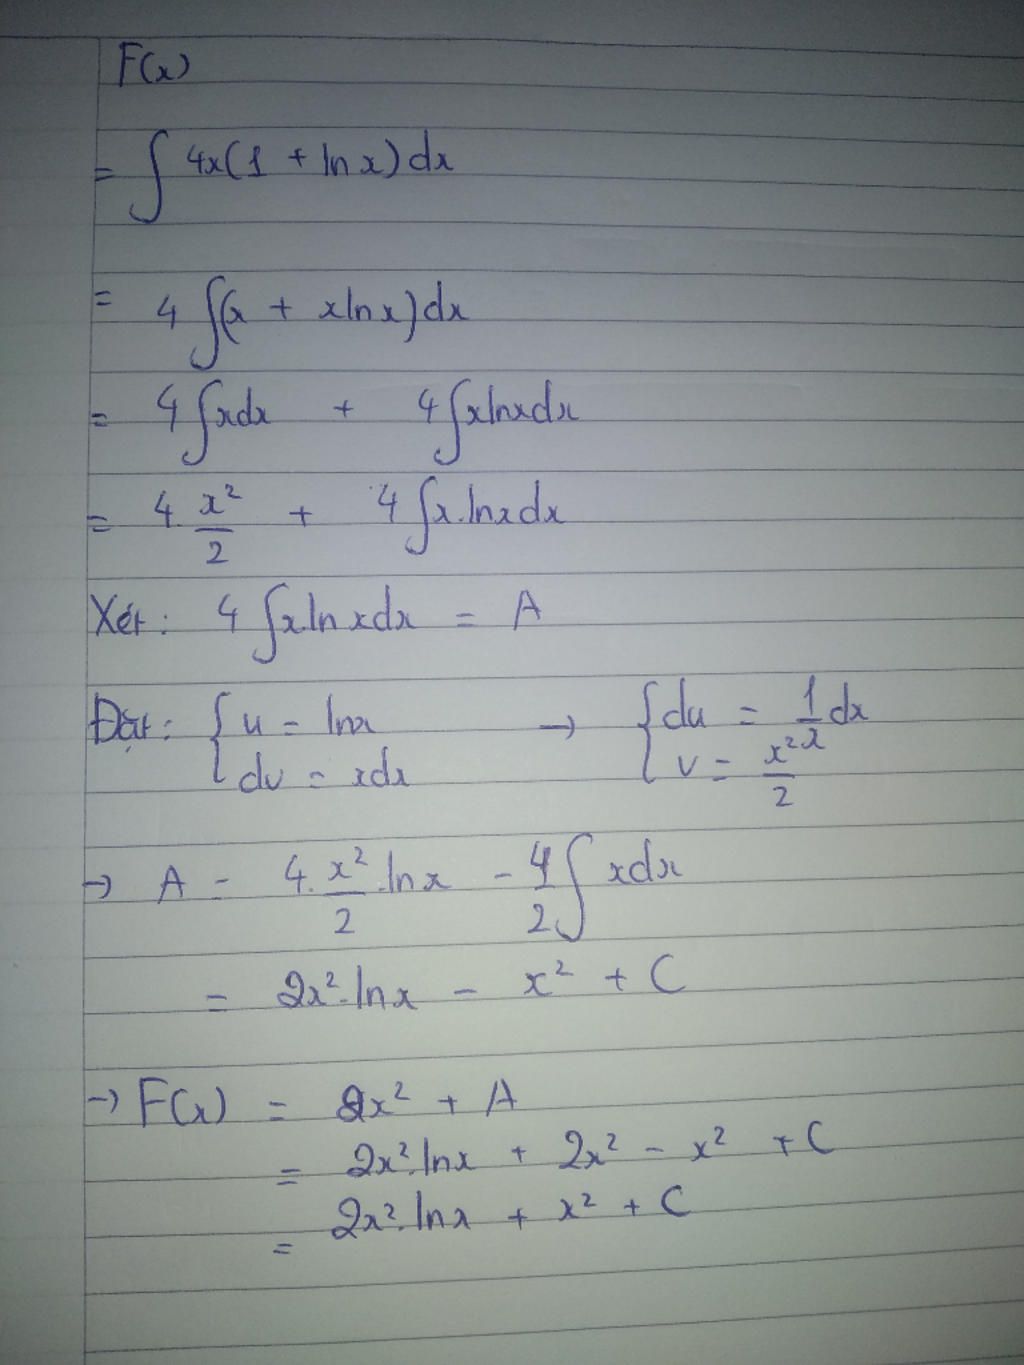 F(x)
= ∫ 4x(1 + ln x) dx
= 4 ∫(x + xln x) dx
= 4 ∫xdx + 4 ∫xlnxdx
= 4. x²/2 + 4 ∫x.lnxdx
Xét: 4 ∫x.ln xdx = A
Đặt: { u = lnx → { du = 1/x dx
{ dv = xdx { v = x²/2
→ A = 4. x²/2 .ln x - 4/2 ∫ xdx
= 2x².ln x - x² + C
→ F(x) = 2x² + A
= 2x².lnx + 2x² - x² + C
= 2x². ln x + x² + C